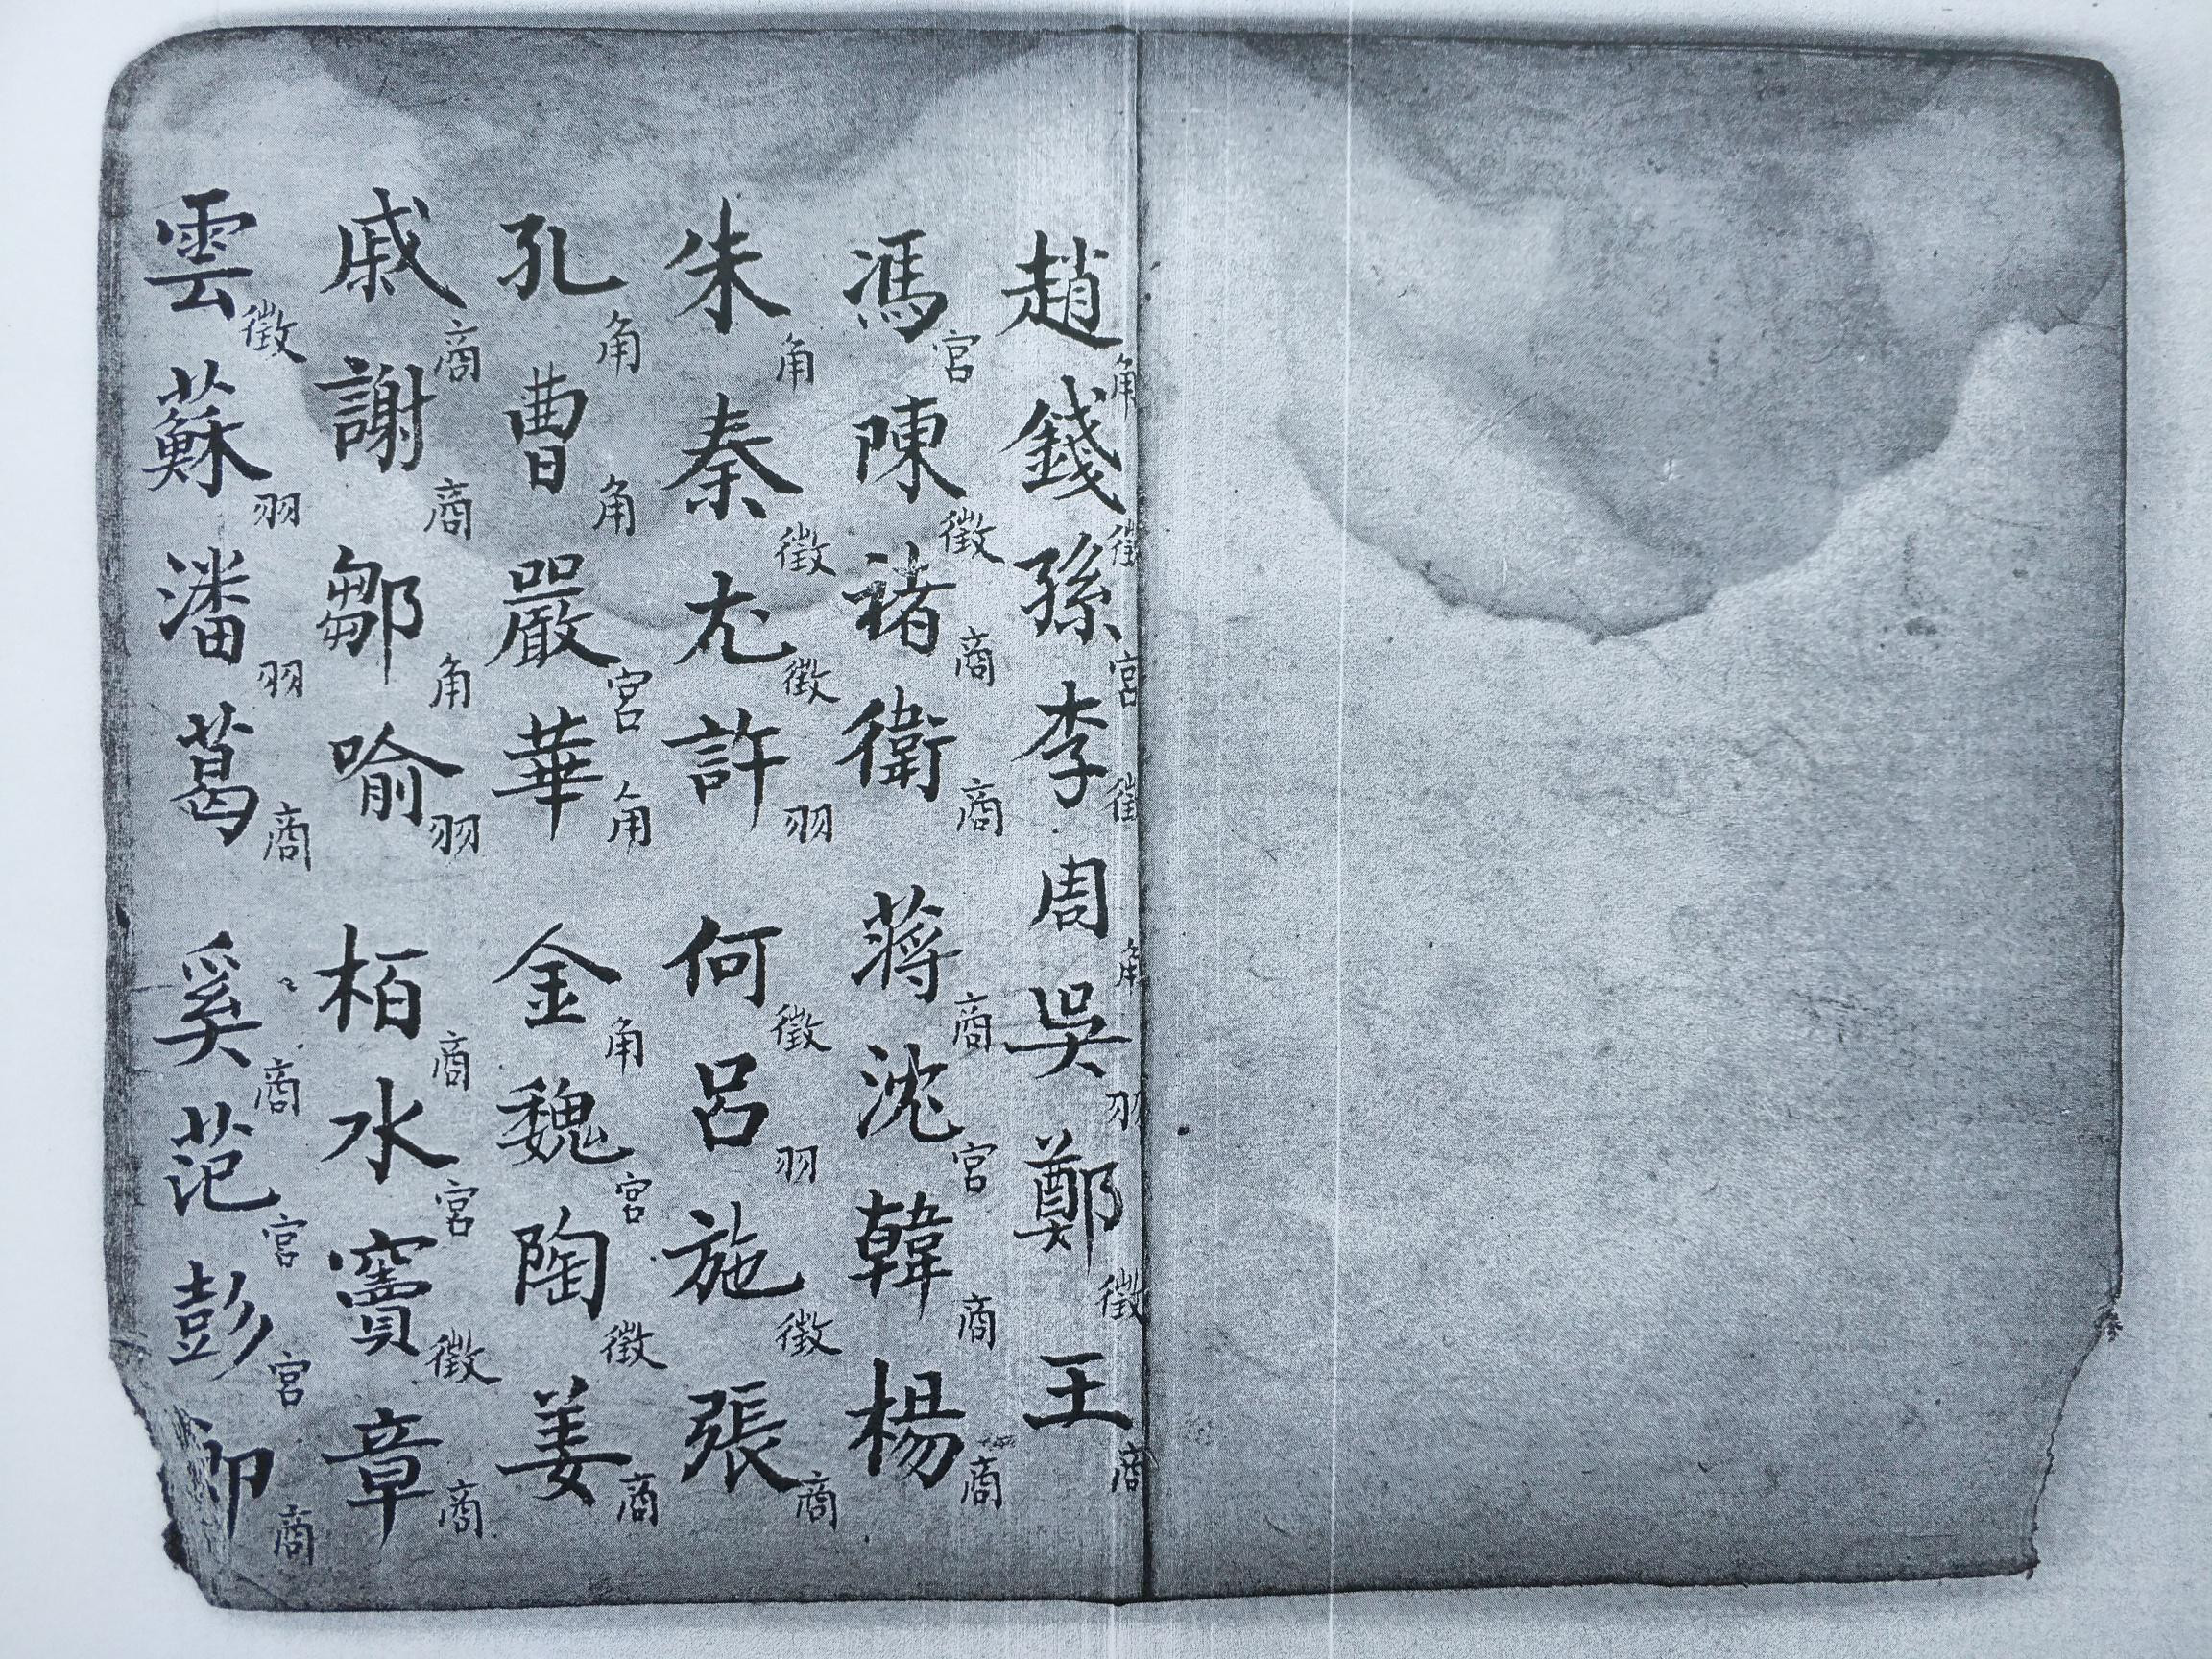 趙角錢徵孫宮李徵周角吳羽鄭徵王商
馮宮陳徵禇商衛商蔣商沈宮韓商楊商
朱角秦徵尤徵許羽何徵呂羽施徵張商
孔角曹角嚴宮華角金角魏宮陶徵姜商
戚商謝商鄒角喻羽栢商水宮竇徵章商
雲徵蘇羽潘羽葛商奚商范宮彭宮商